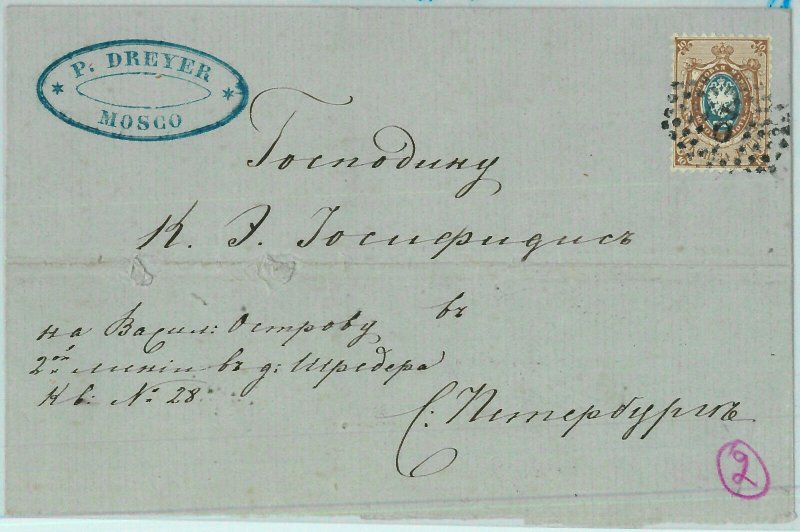 * P. DREYER *
MOSCO
Господину
К. Э. Іосифидисъ
въ
на Васил: Острову
2ой линіи въ д: Шредера
Кв. № 28
С: Петербургъ
2